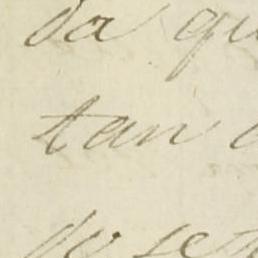 da qu
tan
do se